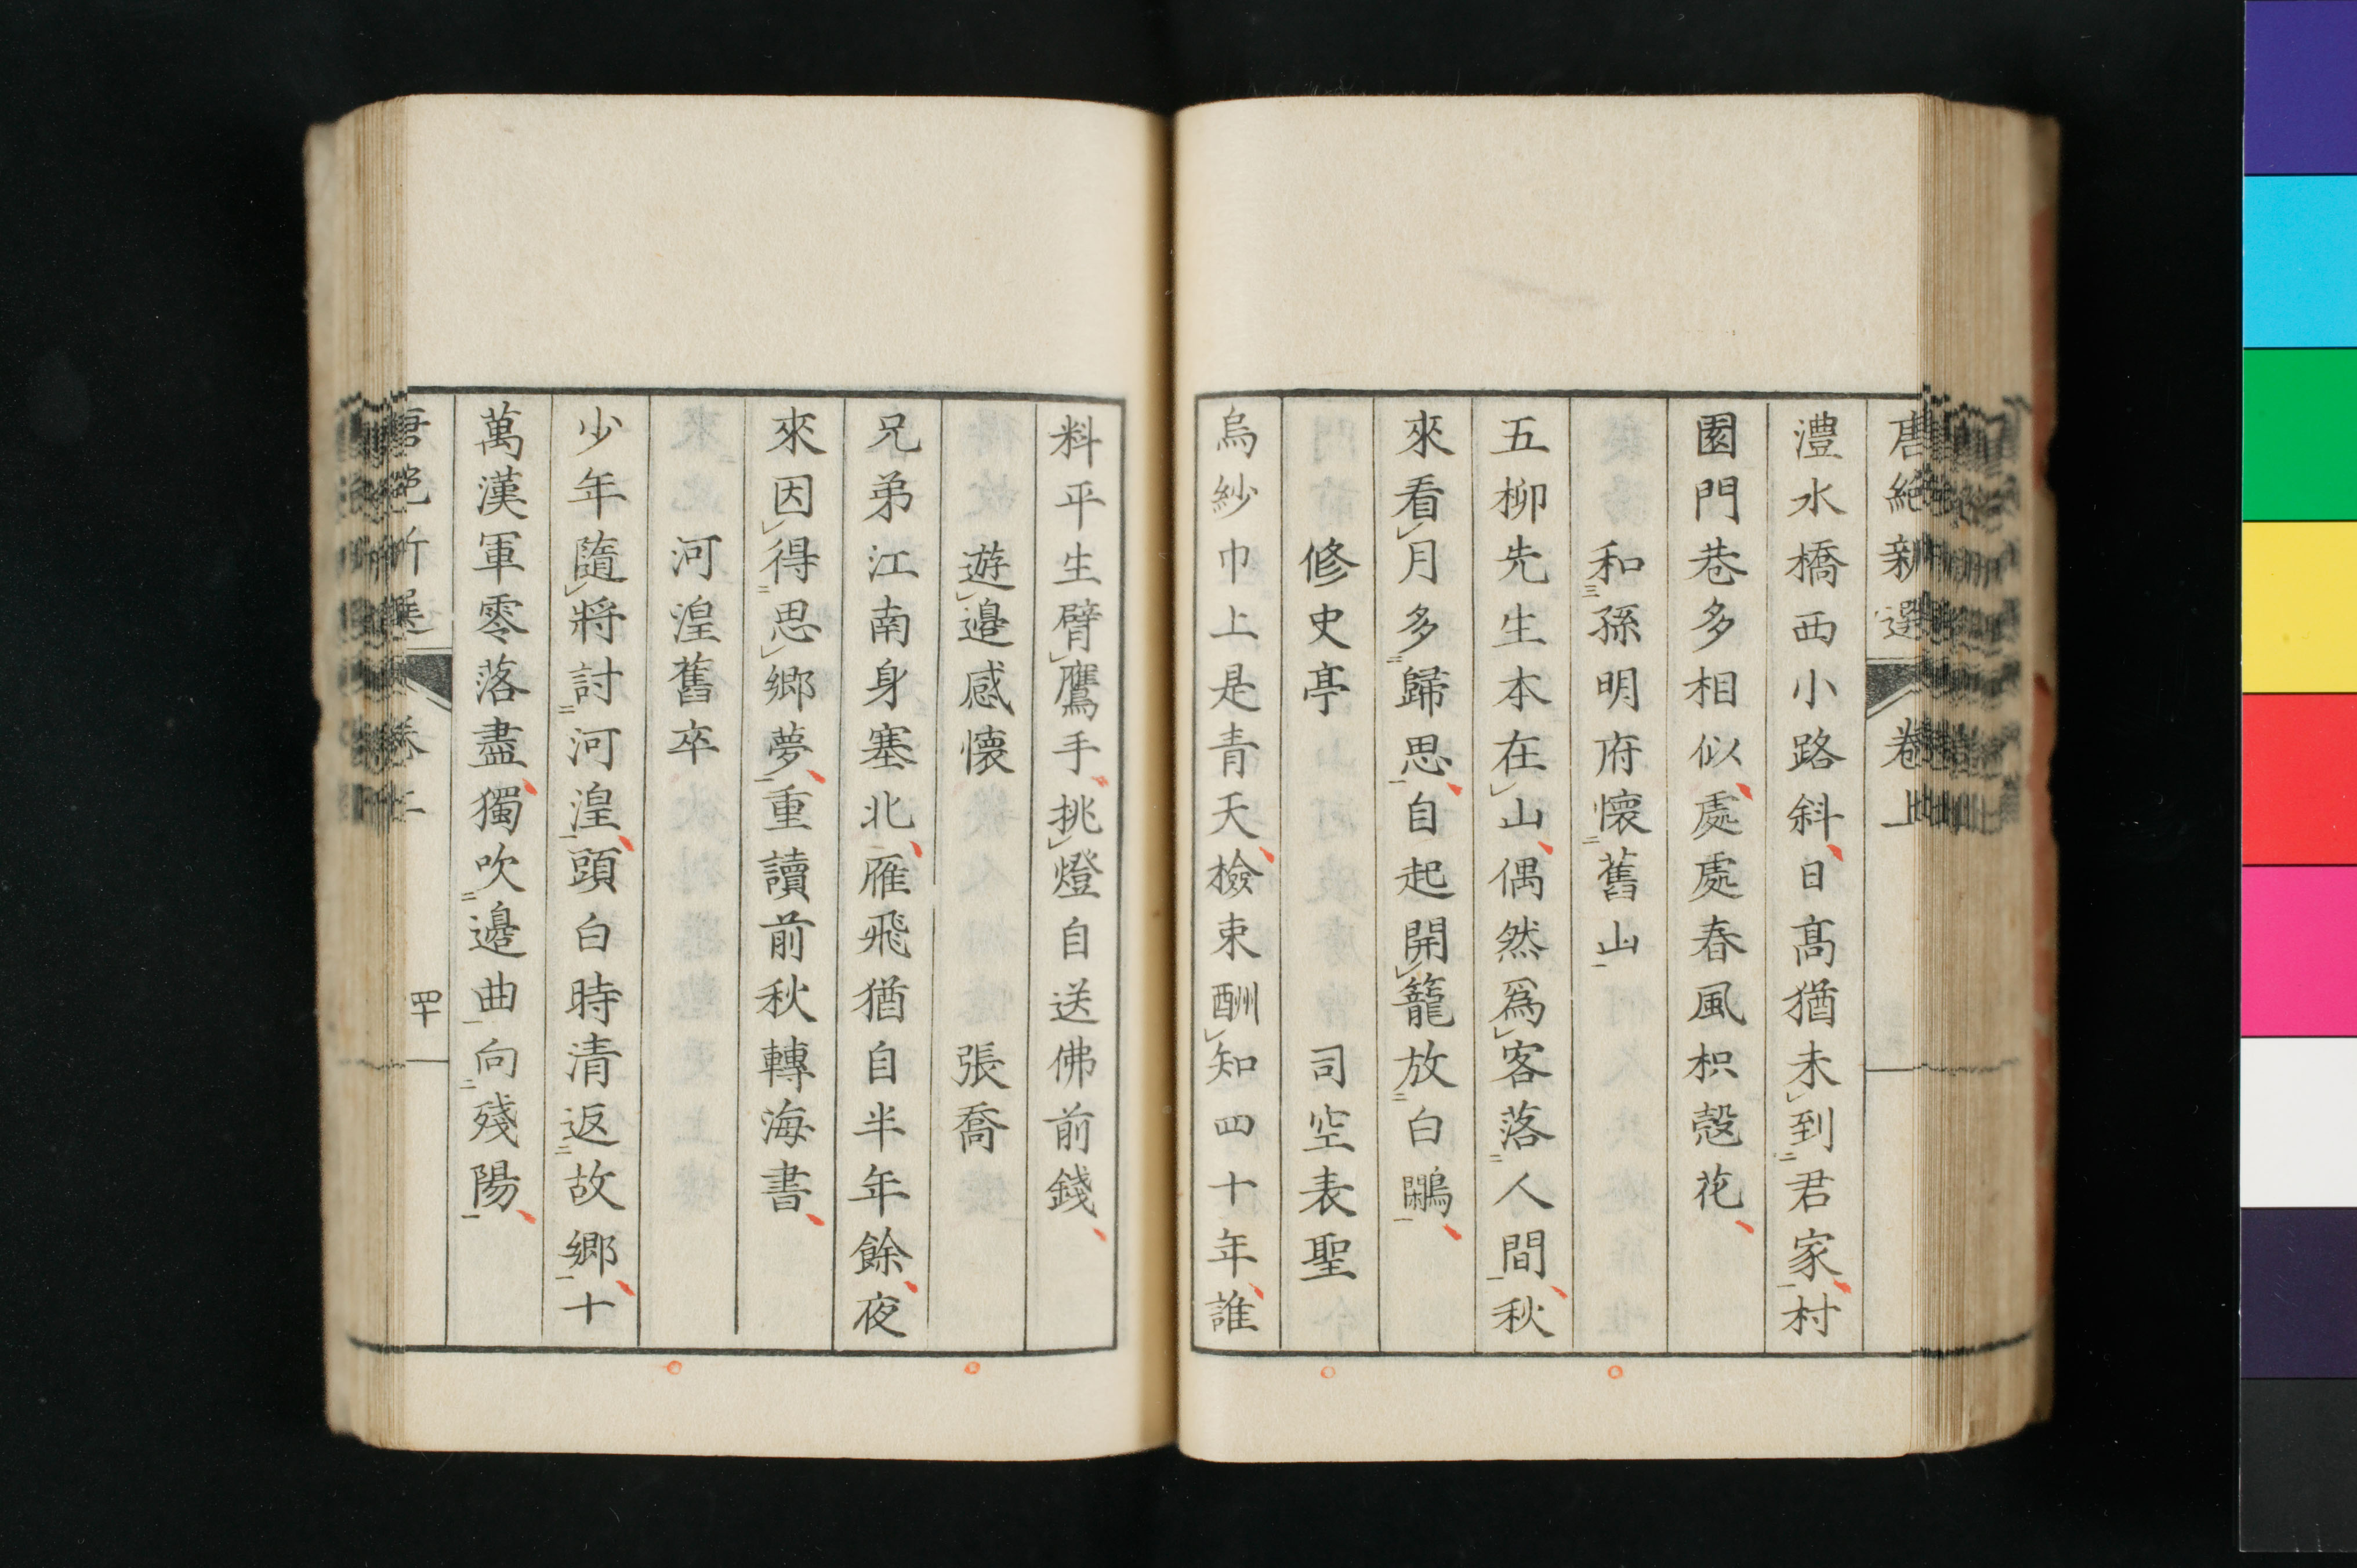 唐絶新選 卷上
灃水橋西小路斜日髙猶未到君家村
園門巷多相似處處春風枳殼花
和孫明府懷舊山
五柳先生本在山偶然爲客落人間秋
來看月多歸思自起開籠放白鷴
修史亭 司空表聖
烏紗巾上是青天檢束酬知四十年誰
料平生臂鷹手挑燈自送佛前錢
遊邉感懷 張喬
兄弟江南身塞北雁飛猶自半年餘夜
來因得思鄉夢重讀前秋轉海書
河湟舊卒
少年隨將討河湟頭白時清返故鄉十
萬漢軍零落盡獨吹邉曲向殘陽